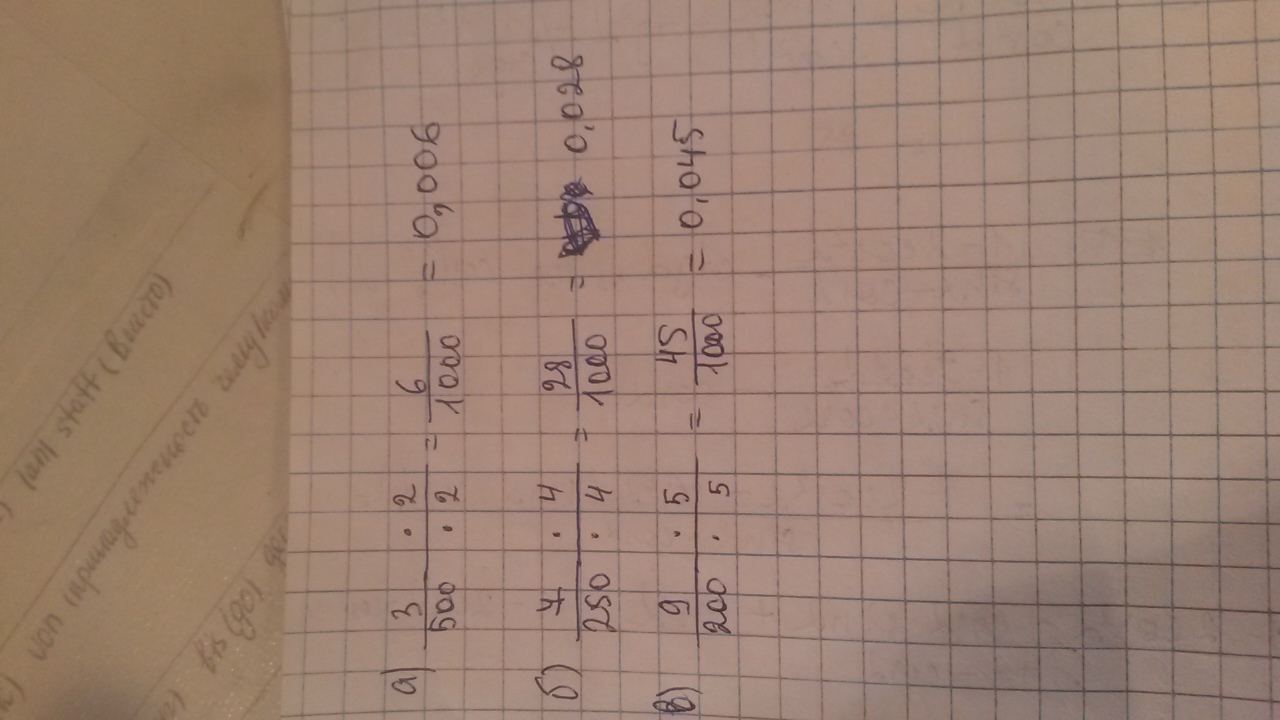 а) 3 · 2 / 500 · 2 = 6 / 1000 = 0,006
б) 7 · 4 / 250 · 4 = 28 / 1000 = 0,028
в) 9 · 5 / 200 · 5 = 45 / 1000 = 0,045
statt (вместо)
von (принадлежность
bis (до)